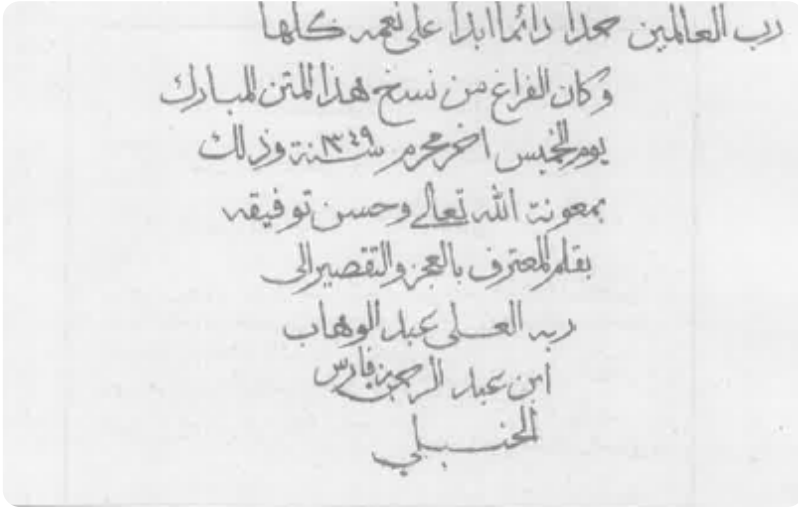 رب العالمين حمدا دائما ابدا على نعمه كلها
وكان الفراغ من نسخ هذا المتن المبارك
يوم الخميس اخر محرم سنة ١٣٤٩ وذلك
بمعونة الله تعالى وحسن توفيقه
بقلم المعترف بالعجز والتقصير الى
ربه العلي عبد الوهاب
ابن عبد الرحمن بن فارس
الحنبلي